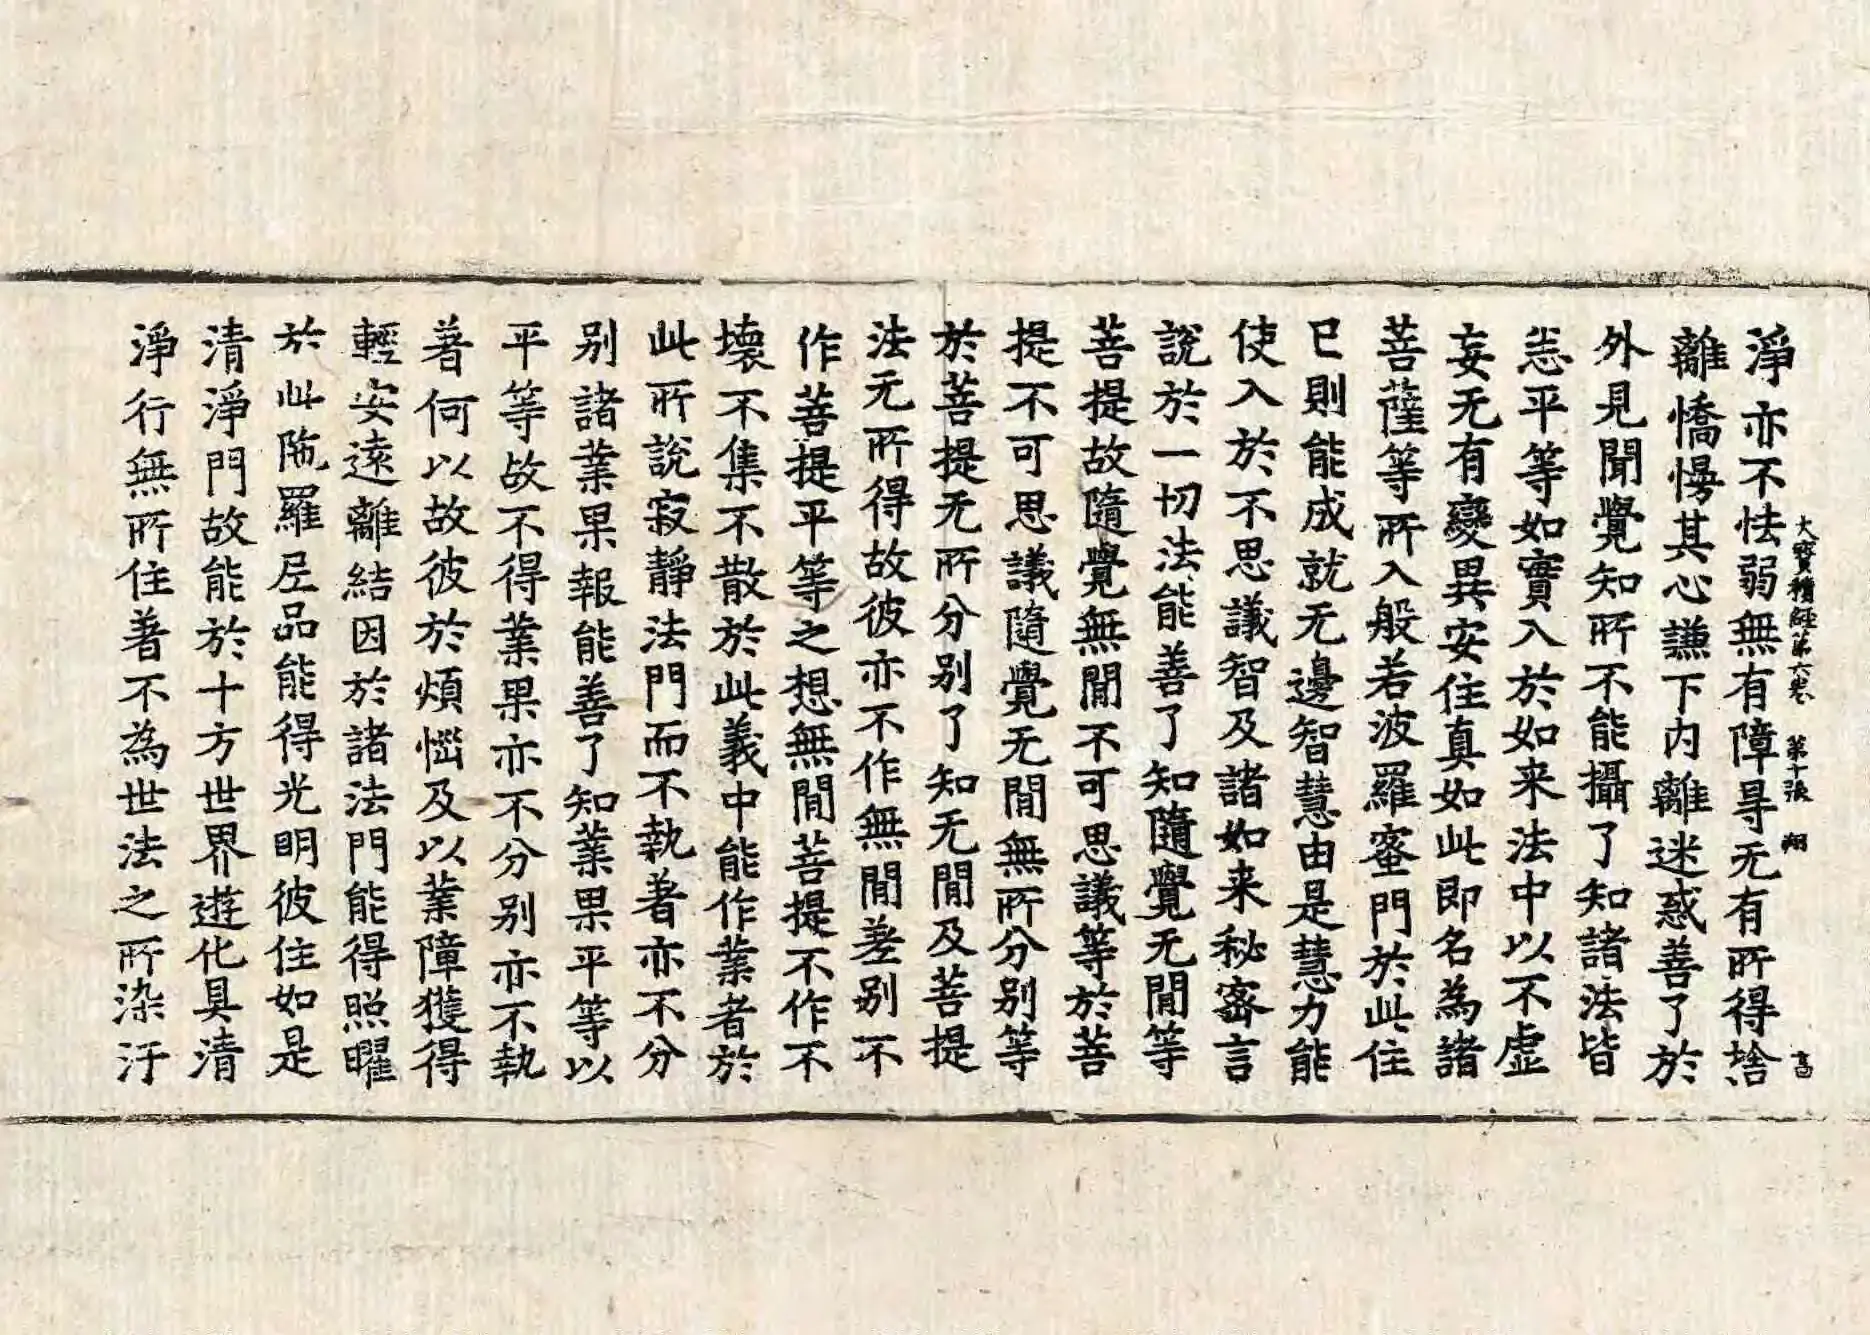 大寳積經第六卷 第十張 翔 啚
淨亦不怯弱無有障㝵无有所得捨
離憍慢其心謙下内離迷惑善了於
外見聞覺知所不能攝了知諸法皆
悉平等如實入於如来法中以不虚
妄无有變異安住真如此即名為諸
菩薩等所入般若波羅蜜門於此住
已則能成就无邊智慧由是慧力能
使入於不思議智及諸如来秘密言
說於一切法能善了知隨覺无閒等
菩提故隨覺無閒不可思議等於菩
提不可思議隨覺无閒無所分别等
於菩提无所分别了知无閒及菩提
法无所得故彼亦不作無閒差别不
作菩提平等之想無閒菩提不作不
壊不集不散於此義中能作業者於
此所説寂靜法門而不執著亦不分
别諸業果報能善了知業果平等以
平等故不得業果亦不分别亦不執
著何以故彼於煩惱及以業障獲得
輕安遠離結因於諸法門能得照曜
於此陁羅尼品能得光明彼住如是
清淨門故能於十方世界遊化具清
淨行無所住著不為世法之所染汙